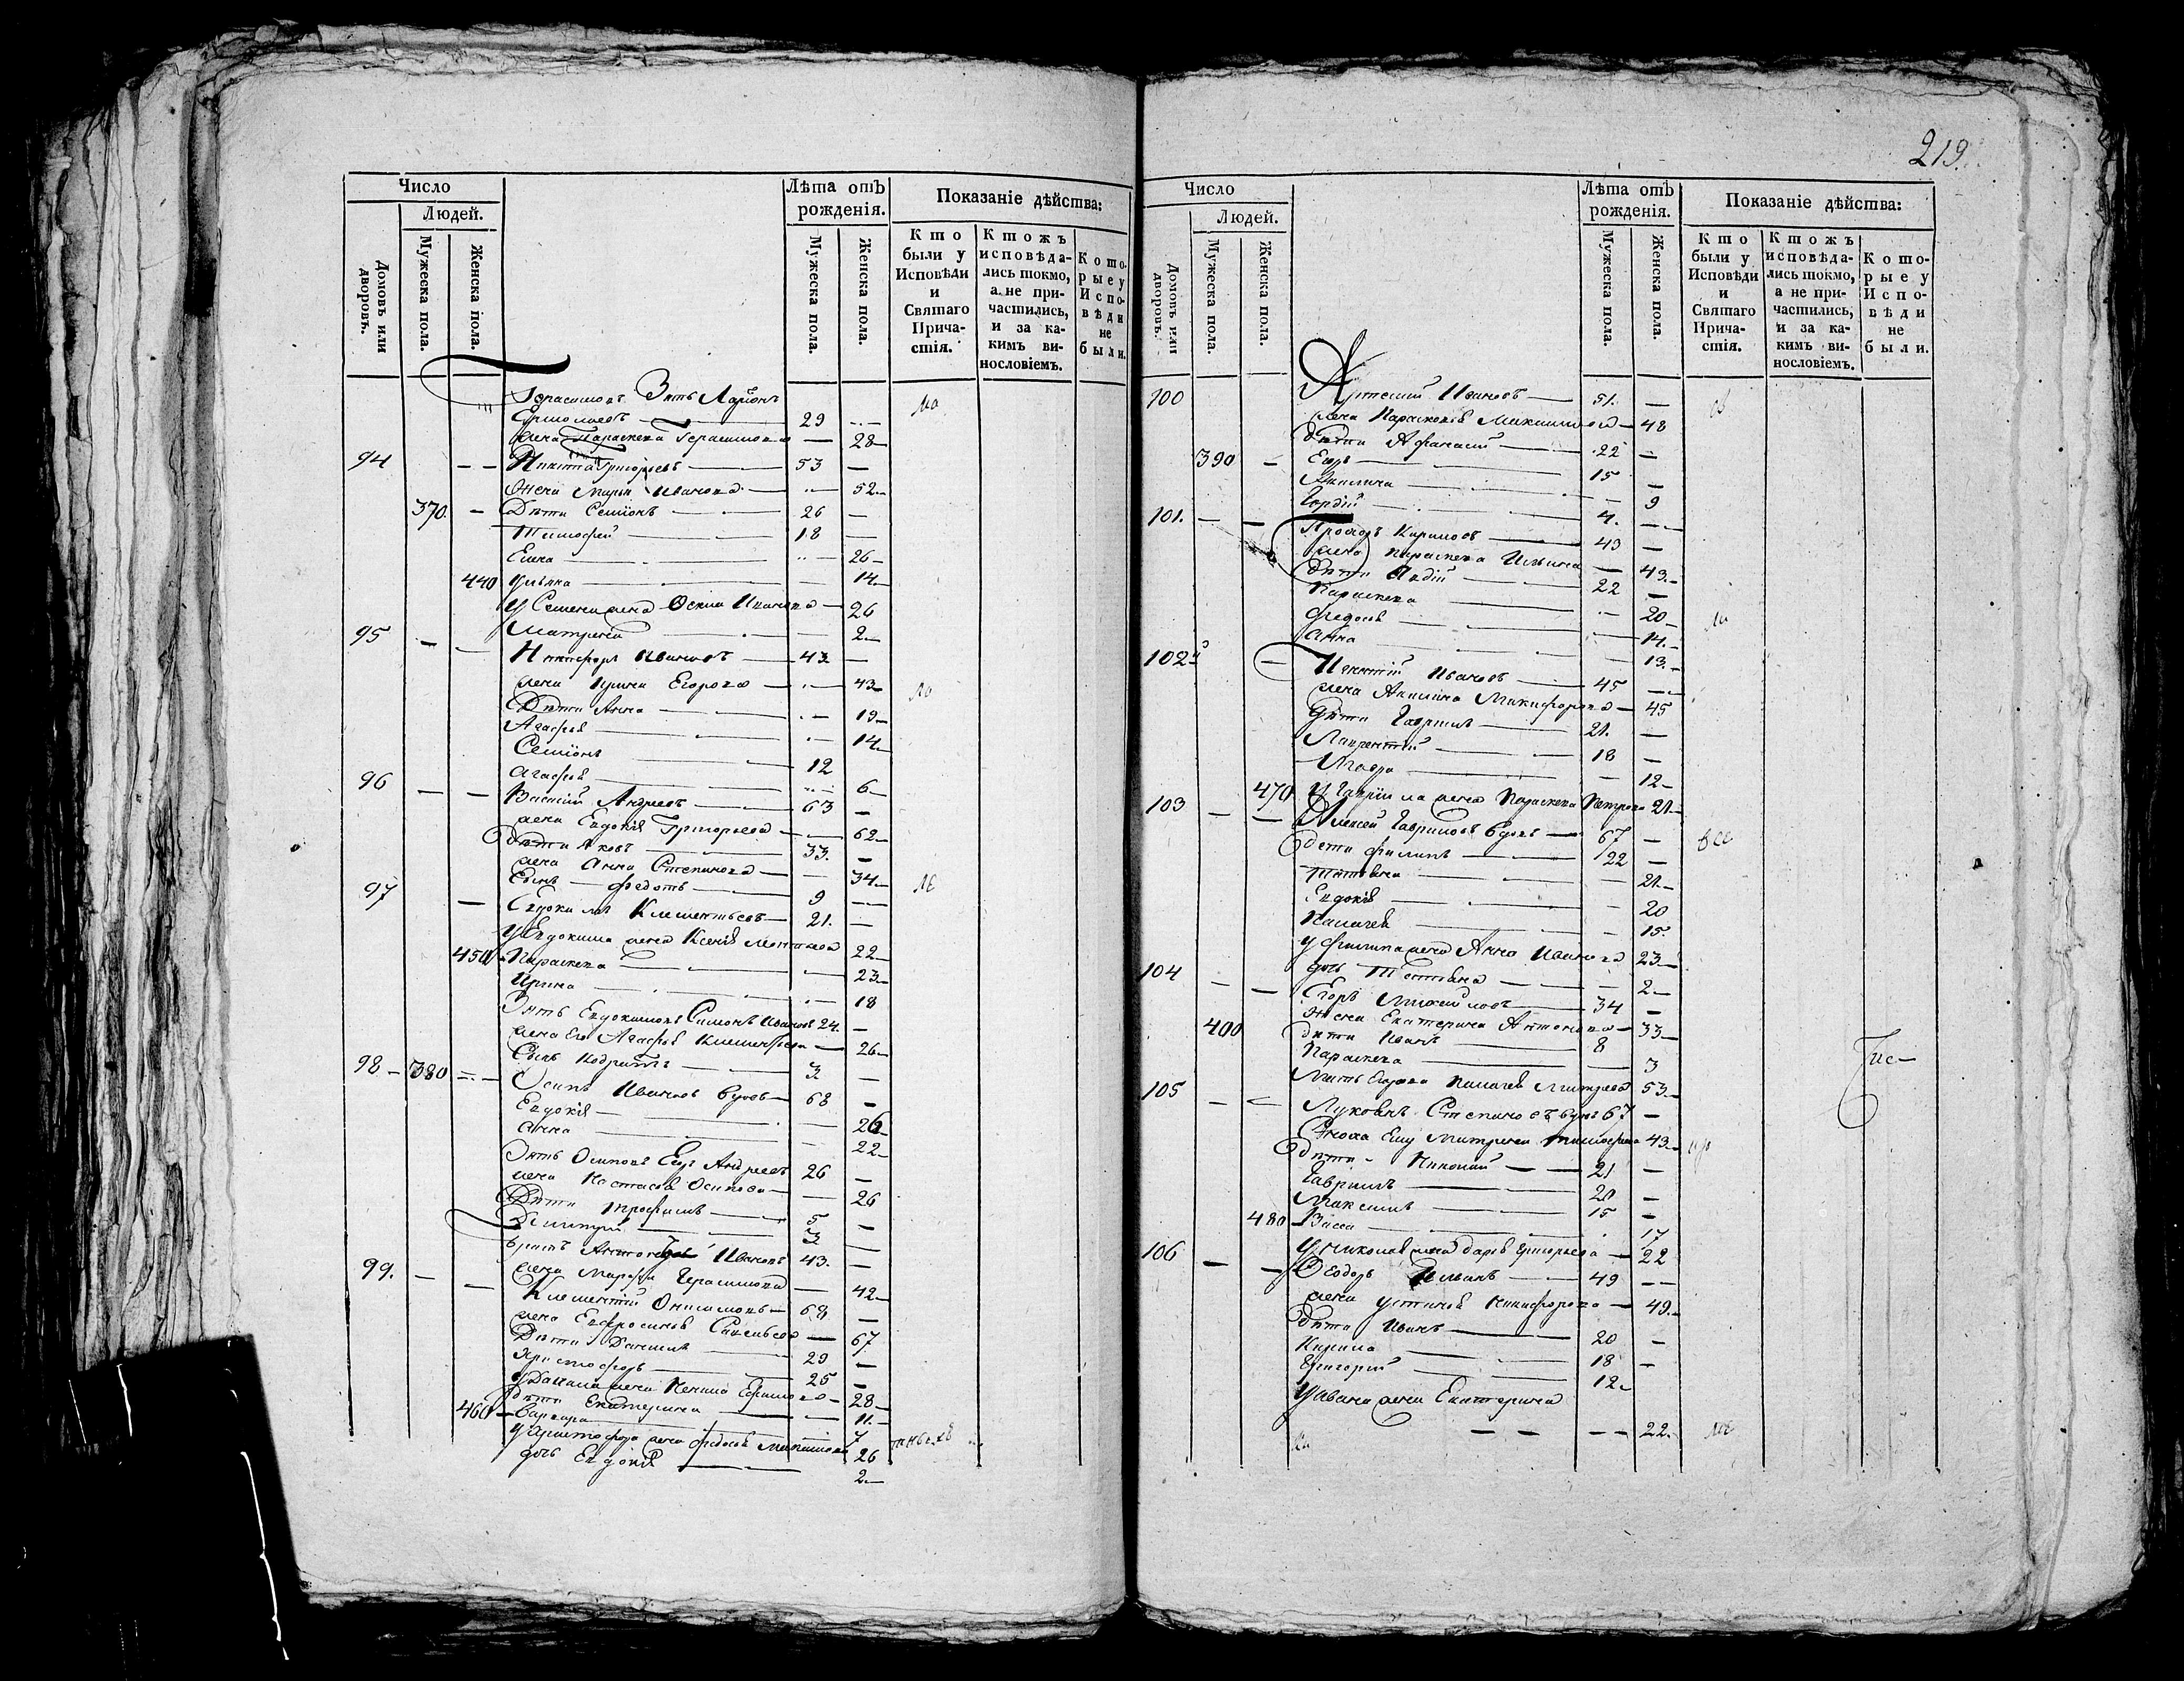 219.
Число
Людей.
Домовъ или дворовъ.
Мужеска пола.
Женска пола.
Лѣта отъ рожденія.
Мужеска пола.
Женска пола.
Показаніе дѣйства:
Кто были у Исповѣди и Святаго Причастія.
Ктожъ исповѣдались токмо, а не причастились, и за какимъ винословіемъ.
Которые у Исповѣди не были.
Герасимовъ Зять Ларіонъ
Ермолаевъ 29
жена Параскева Герасимова 28
94 Никита Григорьевъ 53
Жена Марья Иванова 52
370 Дѣти Семіонъ 26
Тимофей 18
26
440 Улѣяна 14
У Семена жена Иванова 26
2
95 Никифоръ Ивановъ 43
жена Ирина Егорова 43
Дѣти Анна 19
Агафья 14
Семіонъ 12
Агафья 6
96 Василий Андреевъ 63
жена Евдокія Григорьева 62
Дѣти Яковъ 33
жена Анна Степанова 34
Сынъ Федотъ 9
97 Евдокимъ Клементьевъ 21
У Евдокима жена Ксенія 22
450 Параскева 23
Ирина 18
Зять Евдокимовъ Симонъ Ивановъ 24
жена Его Агафья Клементьева 26
Сынъ Кодратъ 3
98 380 Осипъ Ивановъ вдовъ 68
Евдокія 26
Анна 22
Зять Осиповъ Андреевъ 26
жена Настасья Осипова 26
Дѣти Трофимъ 5
Дмитрий 3
братъ Ивановъ 43
жена Марфа Герасимова 42
99. Клементий Онисимовъ 68
жена Евфросинья Савельева 67
Дѣти Данилъ 29
Христофоръ 25
У Данила жена Ефимова 28
Дѣти Екатерина 11
460 Варвара 7
У Христофора жена Федосья Максимова 26
дочь Евдокія 2
Число
Людей.
Домовъ или дворовъ.
Мужеска пола.
Женска пола.
Лѣта отъ рожденія.
Мужеска пола.
Женска пола.
Показаніе дѣйства:
Кто были у Исповѣди и Святаго Причастія.
Ктожъ исповѣдались токмо, а не причастились, и за какимъ винословіемъ.
Которые у Исповѣди не были.
100 Артемий Ивановъ 51.
жена Парасковья Максимова 48
Дѣти Афанасий 22
390 Егоръ 15
Акилина 9
Гордій 4.
101. Прохоръ Кириловъ 43
жена Параскева Ильина 43
Дѣти 22
Параскева 20
Федосья 14
Анна 13
102 Игнатій Ивановъ 45
жена Акилина Никифорова 45
Дѣти Гаврилъ 21.
Лаврентий 18
Мавра 12
470 У Гаврила жена Параскева Петрова 21
103 Алексей Гавриловъ вдовъ 67
дети Филипъ 22
Татьяна 21
Евдокія 20
Палагея 15
У Филипа жена Анна Иванова 23
дочь Татьяна 2
104 Егоръ Михайловъ 34
Жена Екатерина Антонова 33
400 Дѣти Иванъ 8
Параскева 3
Мать Егорова Палагея Дмитрева 53
105 Лукьянъ Степановъ вдовъ 67
Сноха Ему Матрена Тимофеева 43
дѣти Николай 21
Гаврилъ 20
Максимъ 15
480 Васса 17
У Николая жена Дарья Григорьева 22
106 Феодоръ 49
жена Устинья Никифорова 49
Дѣти Иванъ 20
Кирила 18
Григорий 12
У Ивана жена Екатерина
22